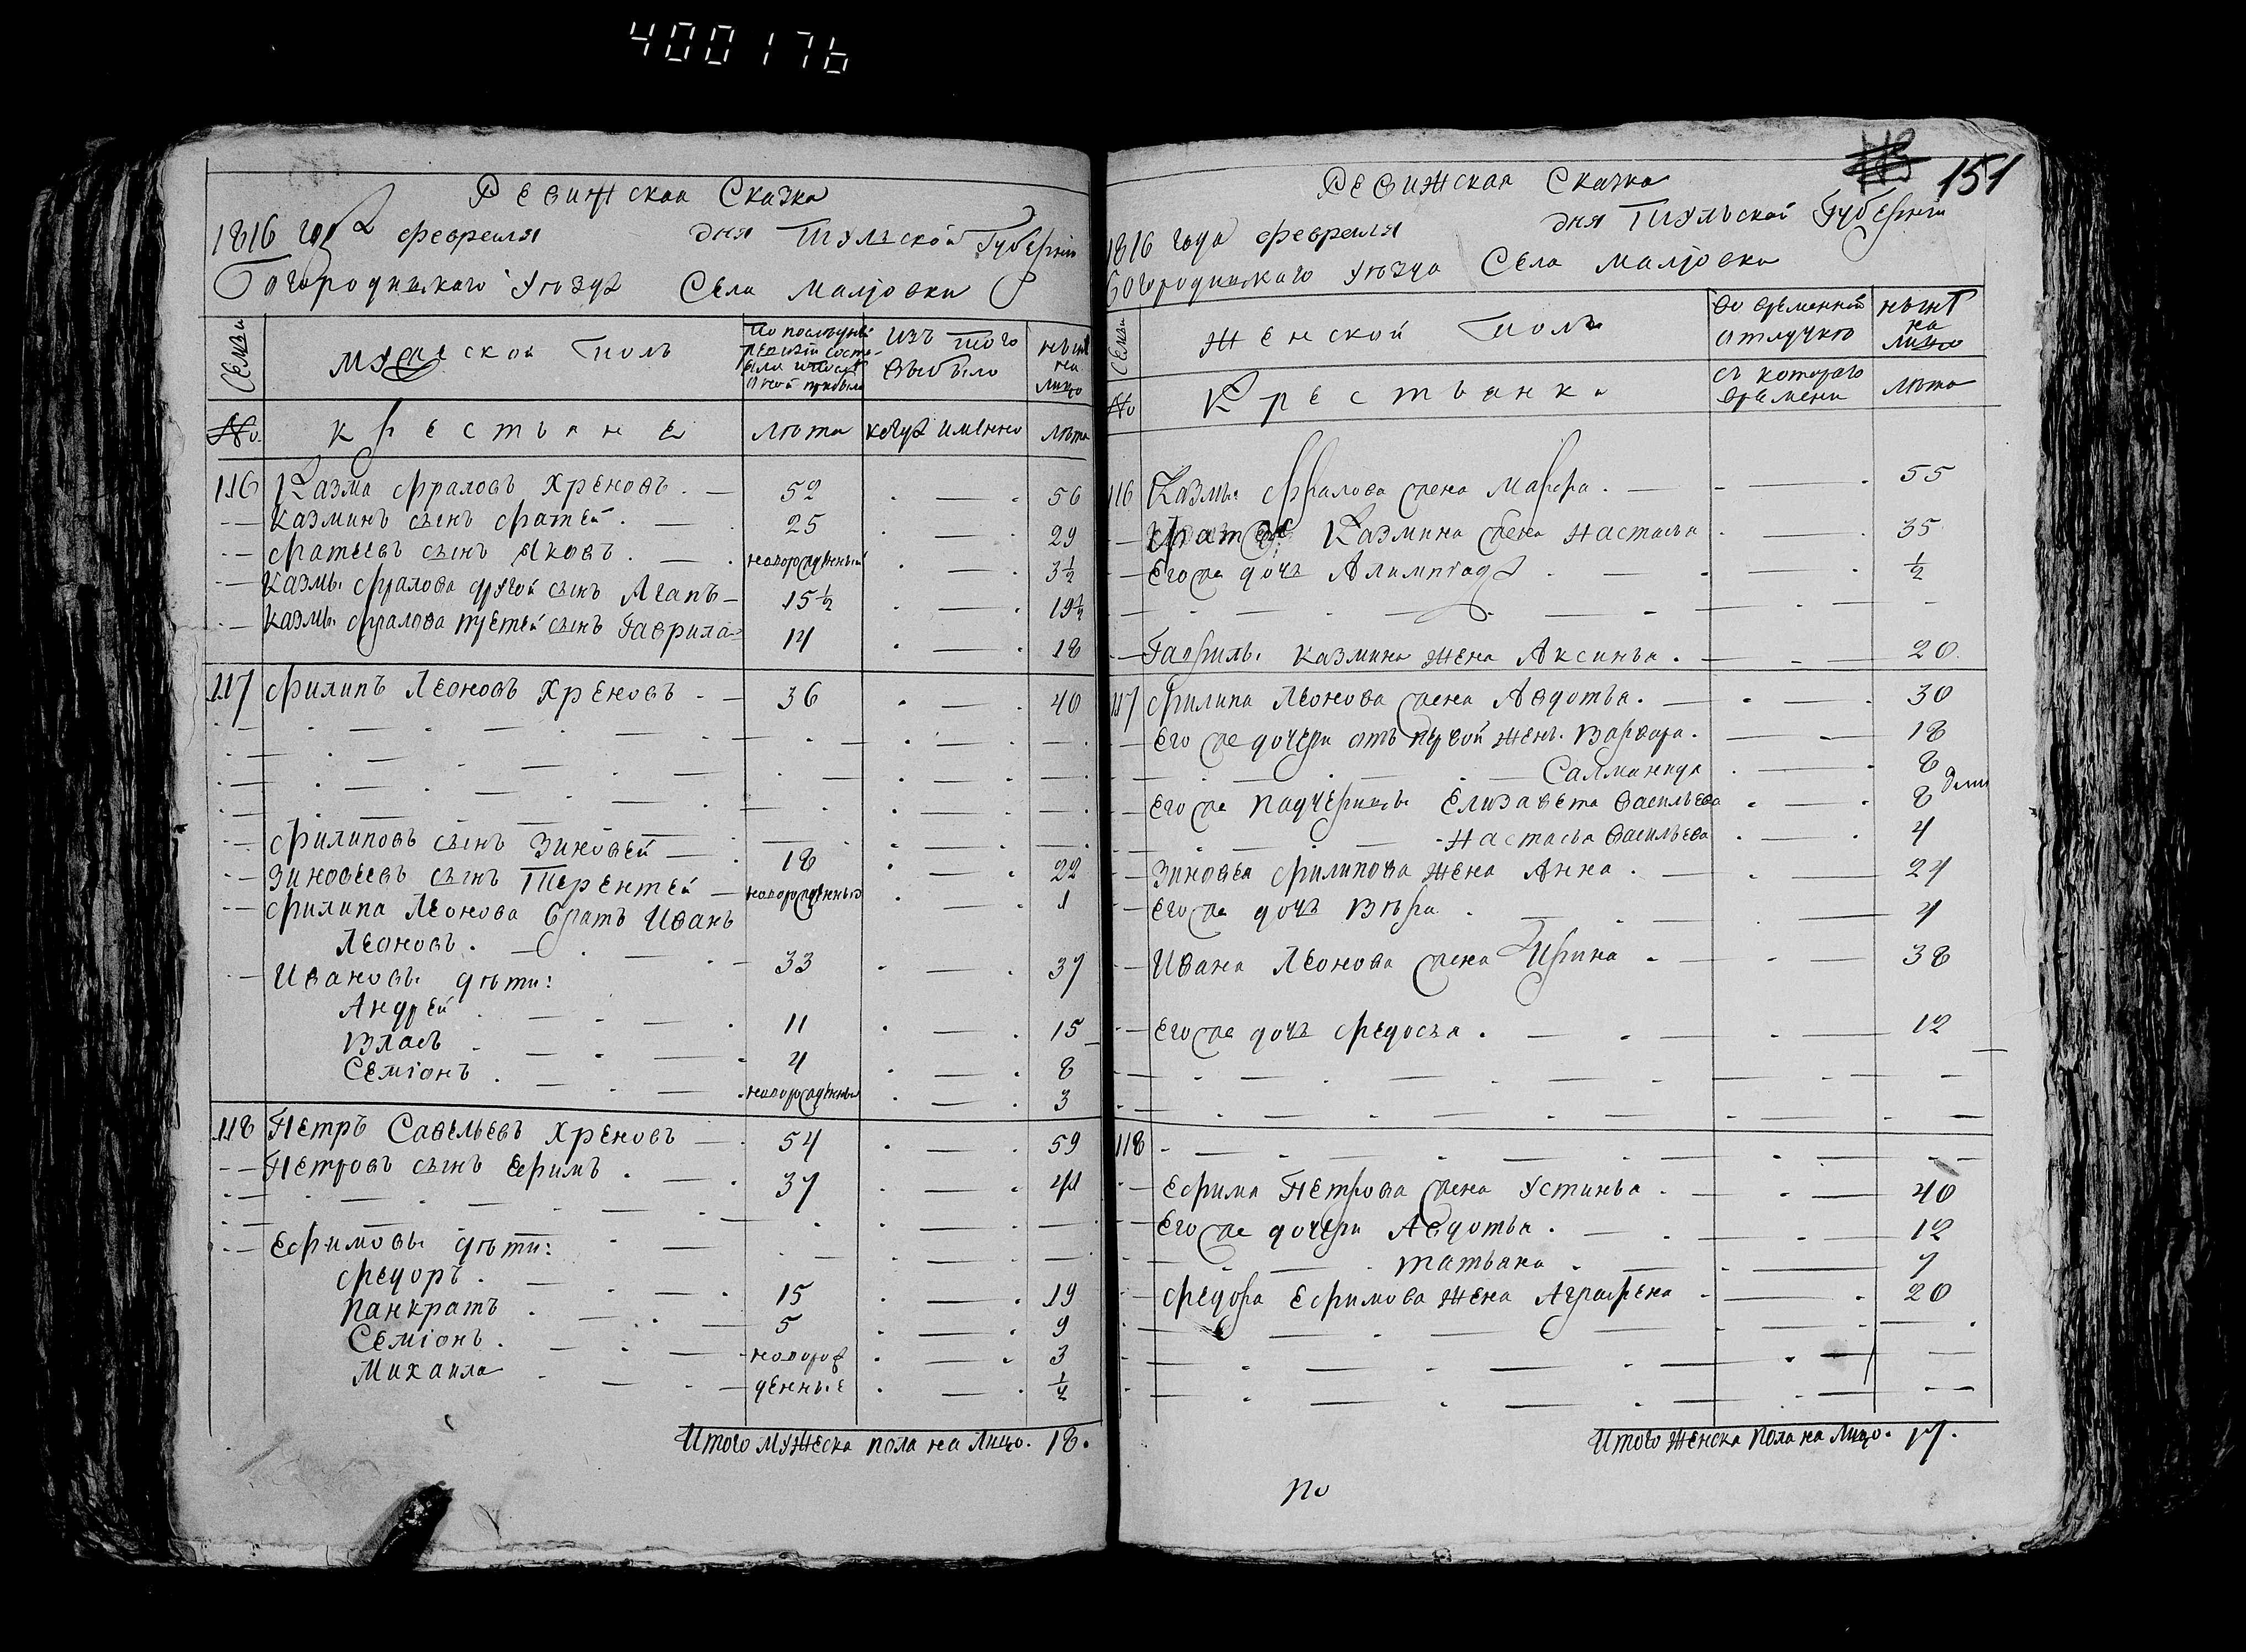 400176
Ревижская Сказка
1816 года февраля дня Тульской Губернїи
Богородицкаго уѣзда Села Малювки
Семьи
мужеской полъ
По последней ревизїи состояло и после оной прибыло
изъ того выбыло
нынѣ на лицо
№
крестьяне
лѣта
когда именно
лѣта
116 Казма Фраловъ Хреновъ. 52 56
Казминъ сынъ Фатей. 25 29
Фатеевъ сынъ Яковъ. новорожденный 3½
Казмы Фралова другой сынъ Агапъ 15½ 19½
Казмы Фралова третей сынъ Гаврила 14 18
117 Филипъ Леоновъ Хреновъ 36 40
Филиповъ сынъ Зиновей 18 22
Зиновеевъ сынъ Терентей новорожденный 1
Филипа Леонова братъ Иванъ
Леоновъ. 33 37
Ивановы дѣти:
Андрей 11 15
Власъ 4 8
Семїонъ. новорожденный 3
118 Петръ Савельевъ Хреновъ 54 59
Петровъ сынъ Ефимъ. 37 41
Ефимовы дѣти:
Федоръ. 15 19
Панкратъ 5 9
Семїонъ. новорож 3
Михаила денные ½
Итого мужеска пола на лицо. 18.
151
Ревижская Сказка
1816 года февраля дня Тульской Губернїи
Богородицкаго уѣзда Села Малювки
Семьи
женской полъ
во временной отлучкѣ
нынѣ на лицо
№
Крестьянки
съ котораго времени
лѣта
116 Казмы Фралова жена Марфа. 55
Фатея Казмина жена Настасья 35
Его же дочь Алимпїада ½
Гаврилы Казмина жена Аксинья. 20.
117 Филипа Леонова жена Авдотья. 30
Его же дочери отъ первой жены Варвара. 18
Салманида 8
Его же падчерицы Елизавета Васильева 8
Настасья Васильева 4
Зиновея Филипова жена Анна. 24
Его же дочь Вѣра 4
Ивана Леонова жена Ирина 38
Его же дочь Федосья. 12
118
Ефима Петрова жена Устинья. 40
Его же дочери Авдотья. 12
татьяна 7
Федора Ефимова жена Аграфена 20
Итого женска пола на лицо. 17.
по